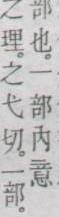 部也。一部內意
之理。之弋切。一部。